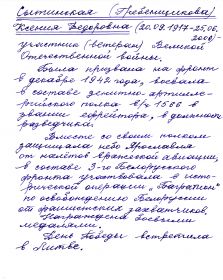 Свитинская (Гребенщикова)
Ксения Федоровна (20.09.1917-25.06.
2000)-
участник (ветеран) Великой
Отечественной войны.
Была призвана на фронт
в декабре 1942 года, воевала
в составе зенитно-артилле-
рийского полка в/ч 1566 в
звании ефрейтора, в должности
разведчика.
Вместе со своим полком
защищала небо Ярославля
от налётов вражеской авиации,
в составе 3-го Белорусского
фронта участвовала в исто-
рической операции "Багратион"
по освобождению Белоруссии
от фашистских захватчиков.
Награждена боевыми
медалями.
День Победы встретила
в Литве.